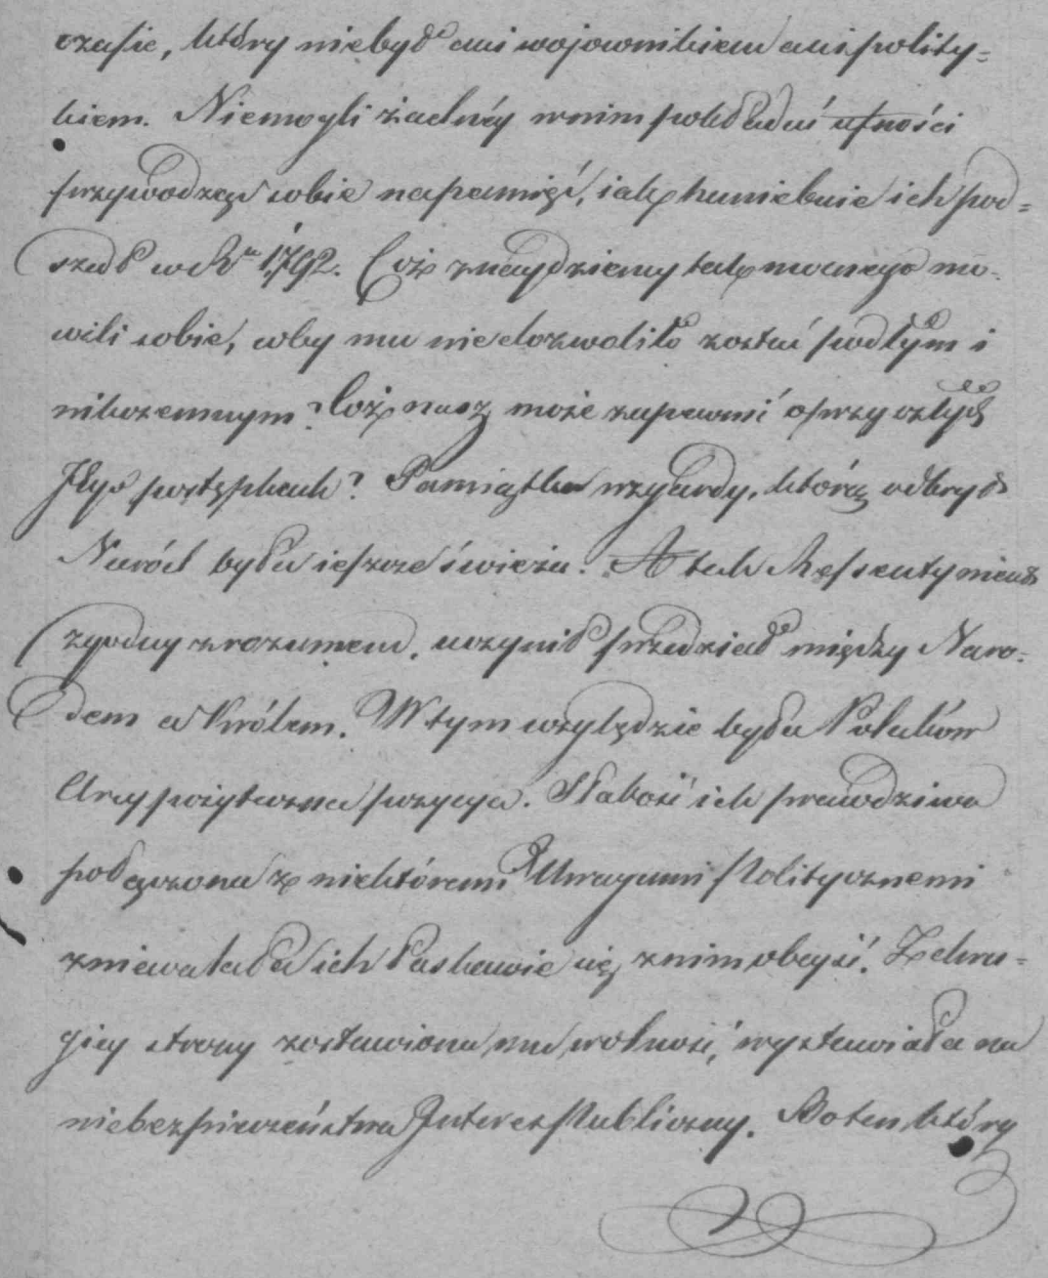 czasie, który niebył ani wojownikiem ani polity-
kiem. Niemogli żadnéy w nim pokładać ufności
przywodząc sobie na pamięć, iak haniebnie ich pod-
szedł w Ru 1792. Coż znaydziemy tak mocnego mo-
wili sobie, coby mu niedozwoliło zostać podłym i
nikczemnym? Coż nasz może zapewnić o przyszłych
Jego postępkach? Pamiątka wzgardy, którą odkrył
Naród była ieszcze świeża. A tak Ressentyment
zgodny z rozumem, uczynił przedział między Naro-
dem a Królem. W tym względzie była Polaków
Arcypożyteczna pozycya. Słabość ich prawdziwa
połączona z niektóremi Uwagami Politycznemi
zniewalała ich łaskawie się z nim obeyść. Z dru-
giey strony zostawiona mu wolność, wystawiała na
niebezpieczeństwa Interes Publiczny. Bo ten, który